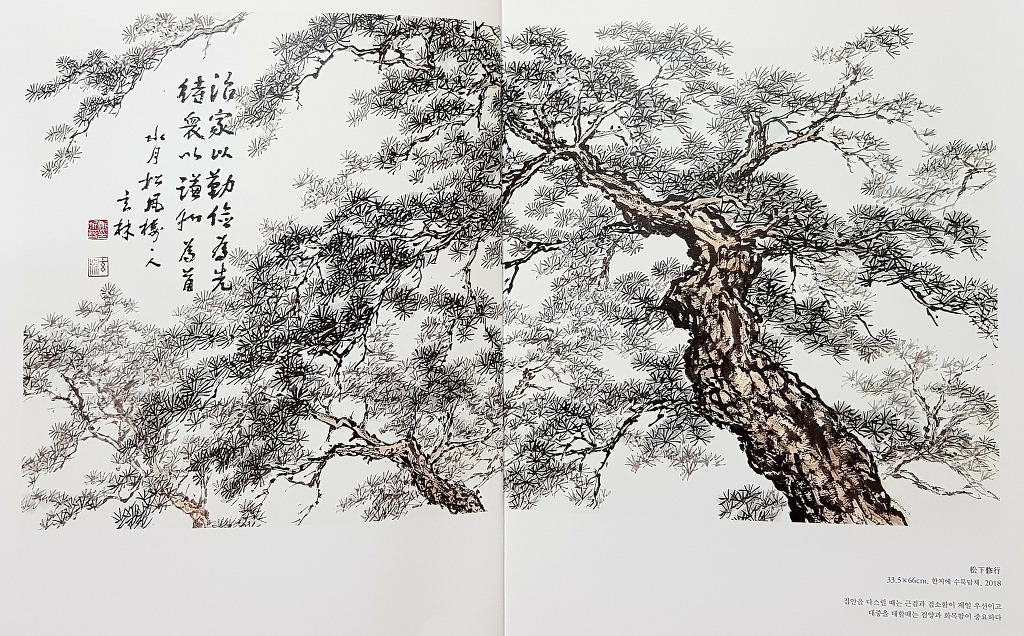 治家以勤儉為先
待衆以謙和為首
水月松風樓〻人
玄林
玄林
松下修行
33.5×66cm, 한지에 수묵담채, 2018
집안을 다스릴 때는 근검과 검소함이 제일 우선이고
대중을 대할때는 겸양과 화목함이 중요하다